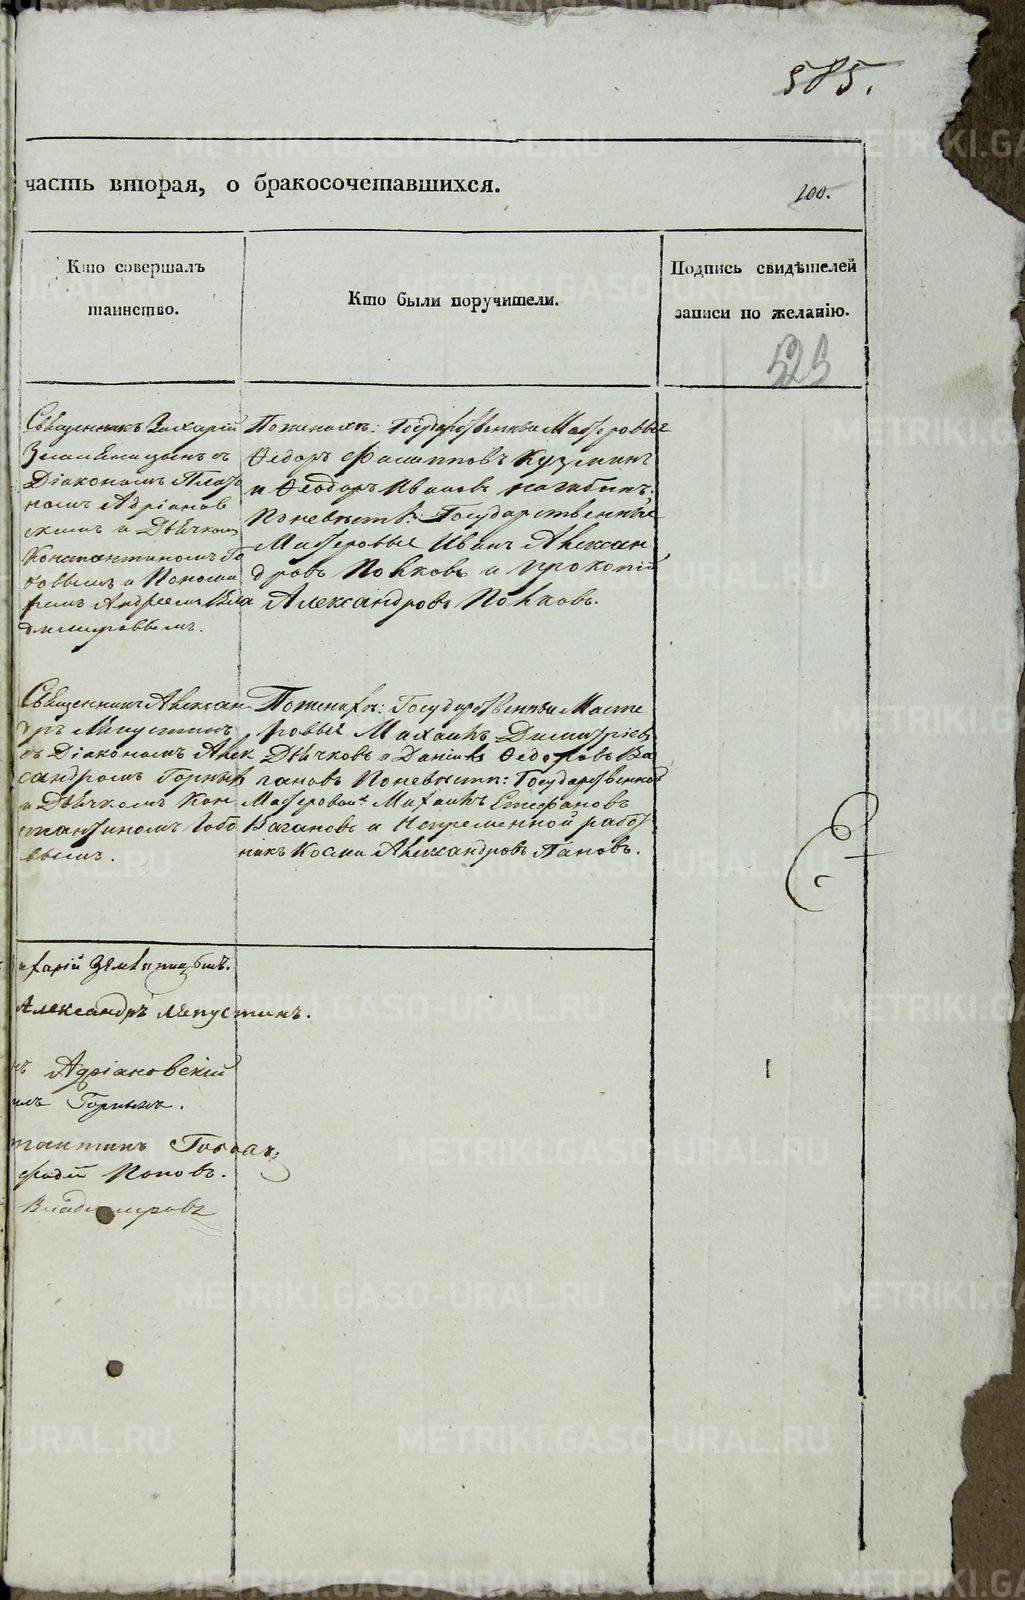 585.
часть вторая, о бракосочетавшихся.
100.
Кто совершалъ
таинство.
Кто были поручители.
Подпись свидѣтелей
записи по желанію.
525
Священникъ Захарій
Земляницынъ съ
Діакономъ Плато
номъ Адріанов
скимъ и Дьячкомъ
Константиномъ Го
ховымъ и Понома
ремъ Андреемъ Вла
димировымъ.
Поженихѣ: Государственные Мастеровые
Ѳедоръ Филипповъ Кузминъ
и Ѳеодоръ Ивановъ Нагибинъ;
Поневѣстѣ: Государственные
Мастеровые Иванъ Алексан
дровъ Попковъ и Прокопій
Александровъ Попковъ.
Священникъ Алексан
дръ Ляпустинъ
съ Діакономъ Алек
сандромъ Горнымъ
и Дьячкомъ Кон
стантиномъ Гобо
вымъ.
Поженихѣ: Государственные Масте
ровые Махаилъ Димитріевъ
Дьячковъ и Даніилъ Ѳедоровъ Ва
гановъ Поневѣсти: Государственной
Мастеровой Михаилъ Стефановъ
Вагановъ и Непременной работ
никъ Косма Александровъ Пановъ.
ахарій Земляницынъ.
Александръ Ляпустинъ.
нъ Адріановскій
омъ Горнымъ.
тантинъ
Поповъ.
Владимировъ
METRIKI.GASO-URAL.RU